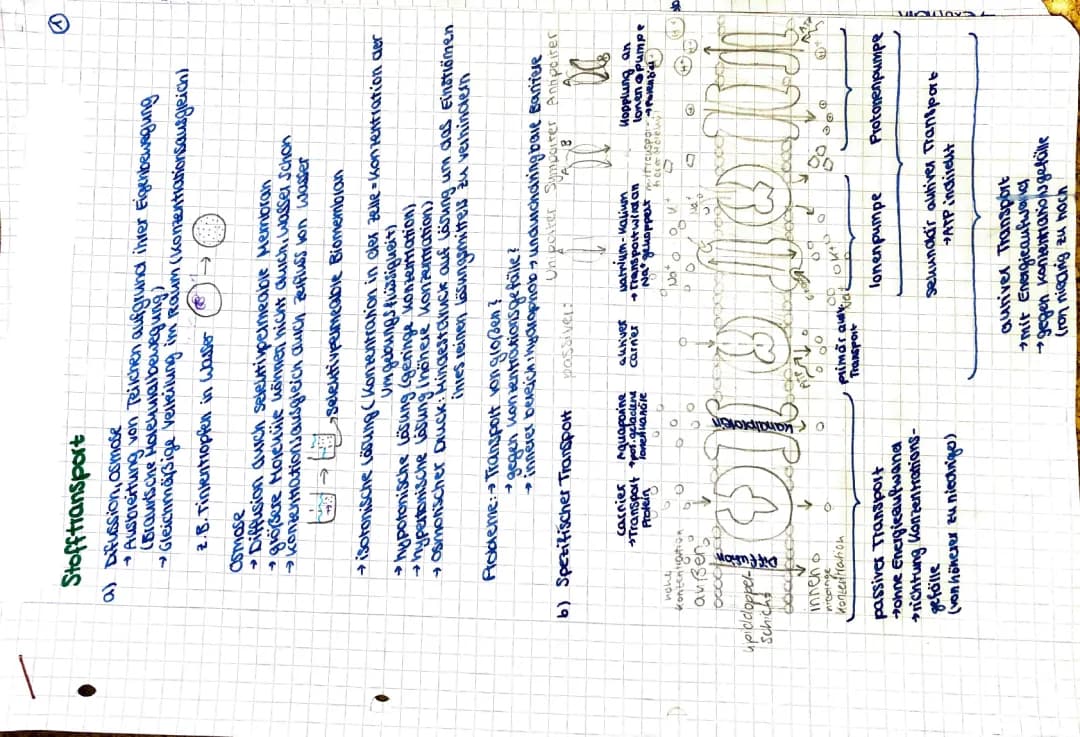 ①
Stofftransport
a) Difussion, Osmose
→ Ausbreitung von Teilchen aufgrund ihrer Eigenbewegung
(Braun'sche Molekularbewegung)
→ Gleichmäßige Verteilung im Raum (Konzentrationsausgleich)
z.B. Tintentropfen in Wasser →
Osmose
→ Diffusion durch selektivpermeable Membran
→ größere Moleküle können nicht durch, Wasser schon
→ Konzentrationsausgleich durch Zufluss von Wasser
→ selektivpermeable Biomembran
→ isotonische Lösung (Konzentration in der Zelle = Konzentration der
Umgebungsflüssigkeit)
→ hypotonische Lösung (geringe Konzentration)
→ hypertonische Lösung (höhere Konzentration)
→ osmotischer Druck: Mindestdruck auf Lösung um das Einströmen
ihres reinen Lösungmittels zu verhindern
Probleme: → Transport von großen?
→ gegen Konzentrationsgefälle?
→ innerer Bereich hydrophob → undurchdringbare Barriere
b) Spezifischer Transport passiver: Uniporter Symporter Antiporter
A B
A B
Carrier
→ Transport
Protein
Aquaporine
→ pos. geladene
Ionenkanäle
aktiver
Carrier
Natrium-Kalium
→ Transport wird an
Na⁺ gekoppelt
Kopplung an
Ionenpumpe
hohe
Konzentration
außen
Na⁺
K⁺
H⁺
Lipiddoppel-
schicht
Diffusion
Kanalprotein
innen
niedrige
Konzentration
ATP
Na⁺
K⁺
ATP
H⁺
primär akt.
Transport
passiver Transport
→ ohne Energieaufwand
→ richtung Konzentrations-
gefälle
(von höherer zu niedriger)
Ionenpumpe
Protonenpumpe
sekundär aktiver Transport
→ ATP indirekt
aktiver Transport
→ mit Energieaufwand
→ gegen Konzentrationsgefälle
(von niedrig zu hoch